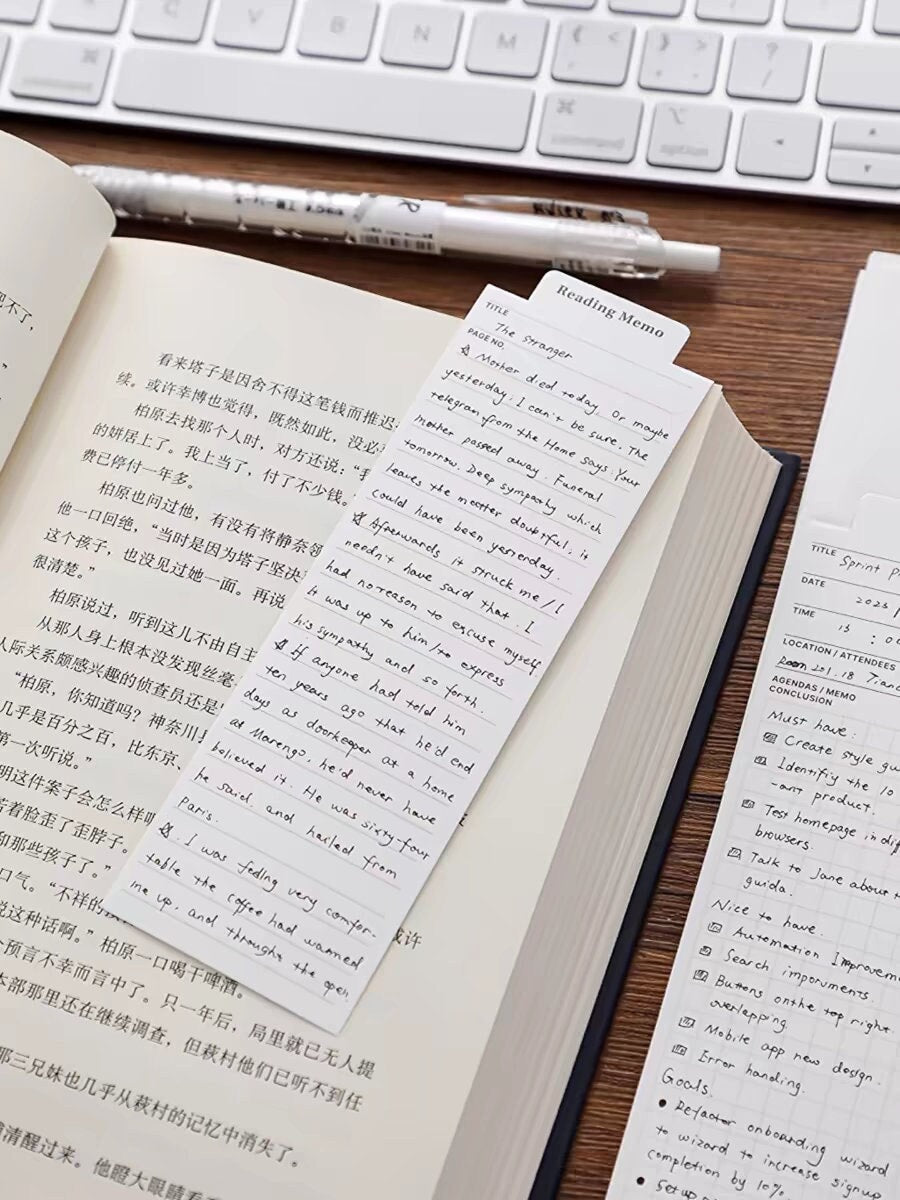 C
V
B
N
M
<
>
?
/
⌘
⌘
command
⌥
option
把不了，
”
看来塔子是因舍不得这笔钱而推迟
续。或许幸博也觉得，既然如此，没必
柏原去找那个人时，对方还说：“我
的姘居上了。我上当了，付了不少钱。
费已停付一年多。
柏原也问过他，有没有将静奈领
他一口回绝，“当时是因为塔子坚决
这个孩子，也没见过她一面。再说
很清楚。”
柏原说过，听到这儿不由自主
从那人身上根本没发现丝毫
人际关系颇感兴趣的侦查员还是
“柏原，你知道吗？神奈川县
几乎是百分之百，比东京、
第一次听说。”
明这件案子会怎么样
若着脸歪了歪脖子。
和那些孩子了。”
口气。“不祥的
或许
说这种话啊。”柏原一口喝干啤酒。
个预言不幸而言中了。只一年后，局里就已无人提
本部那里还在继续调查，但萩村他们已听不到任
那三兄妹也几乎从萩村的记忆中消失了。
清醒过来。他瞪大眼睛看
Reading Memo
TITLE
The stranger
PAGE NO.
Mother died today. Or maybe
yesterday; I can't be sure. The
telegram from the Home says: Your
mother passed away. Funeral
tomorrow. Deep sympathy which
leaves the matter doubtful; it
could have been yesterday.
Afterwards it struck me / I
needn't have said that. I
had no reason to excuse myself
it was up to him / to express
his sympathy and so forth.
If anyone had told him
ten years ago that he'd end
days as doorkeeper at a home
at Marengo, he'd never have
believed it. He was sixty-four
he said. and hailed from
Paris.
. I was feeling very comfor-
table the coffee had warmed
me up, and throught the open
TITLE
Sprint p
DATE
2023 /
TIME
13 : 00
LOCATION / ATTENDEES
Room 201. 18
AGENDAS / MEMO
CONCLUSION
Must have:
Create style gu
Identifiy the 10
-ant product.
Test homepage in diff
browsers.
Talk to Jane about t
guida.
Nice to have
Automation Improveme
Search imporuments.
Buttons on the top right.
overlapping.
Mobile app new design.
Error handing.
Goals.
• Refactor onboarding wizard
to wizard to increase signup
completion by 10%
• Setup